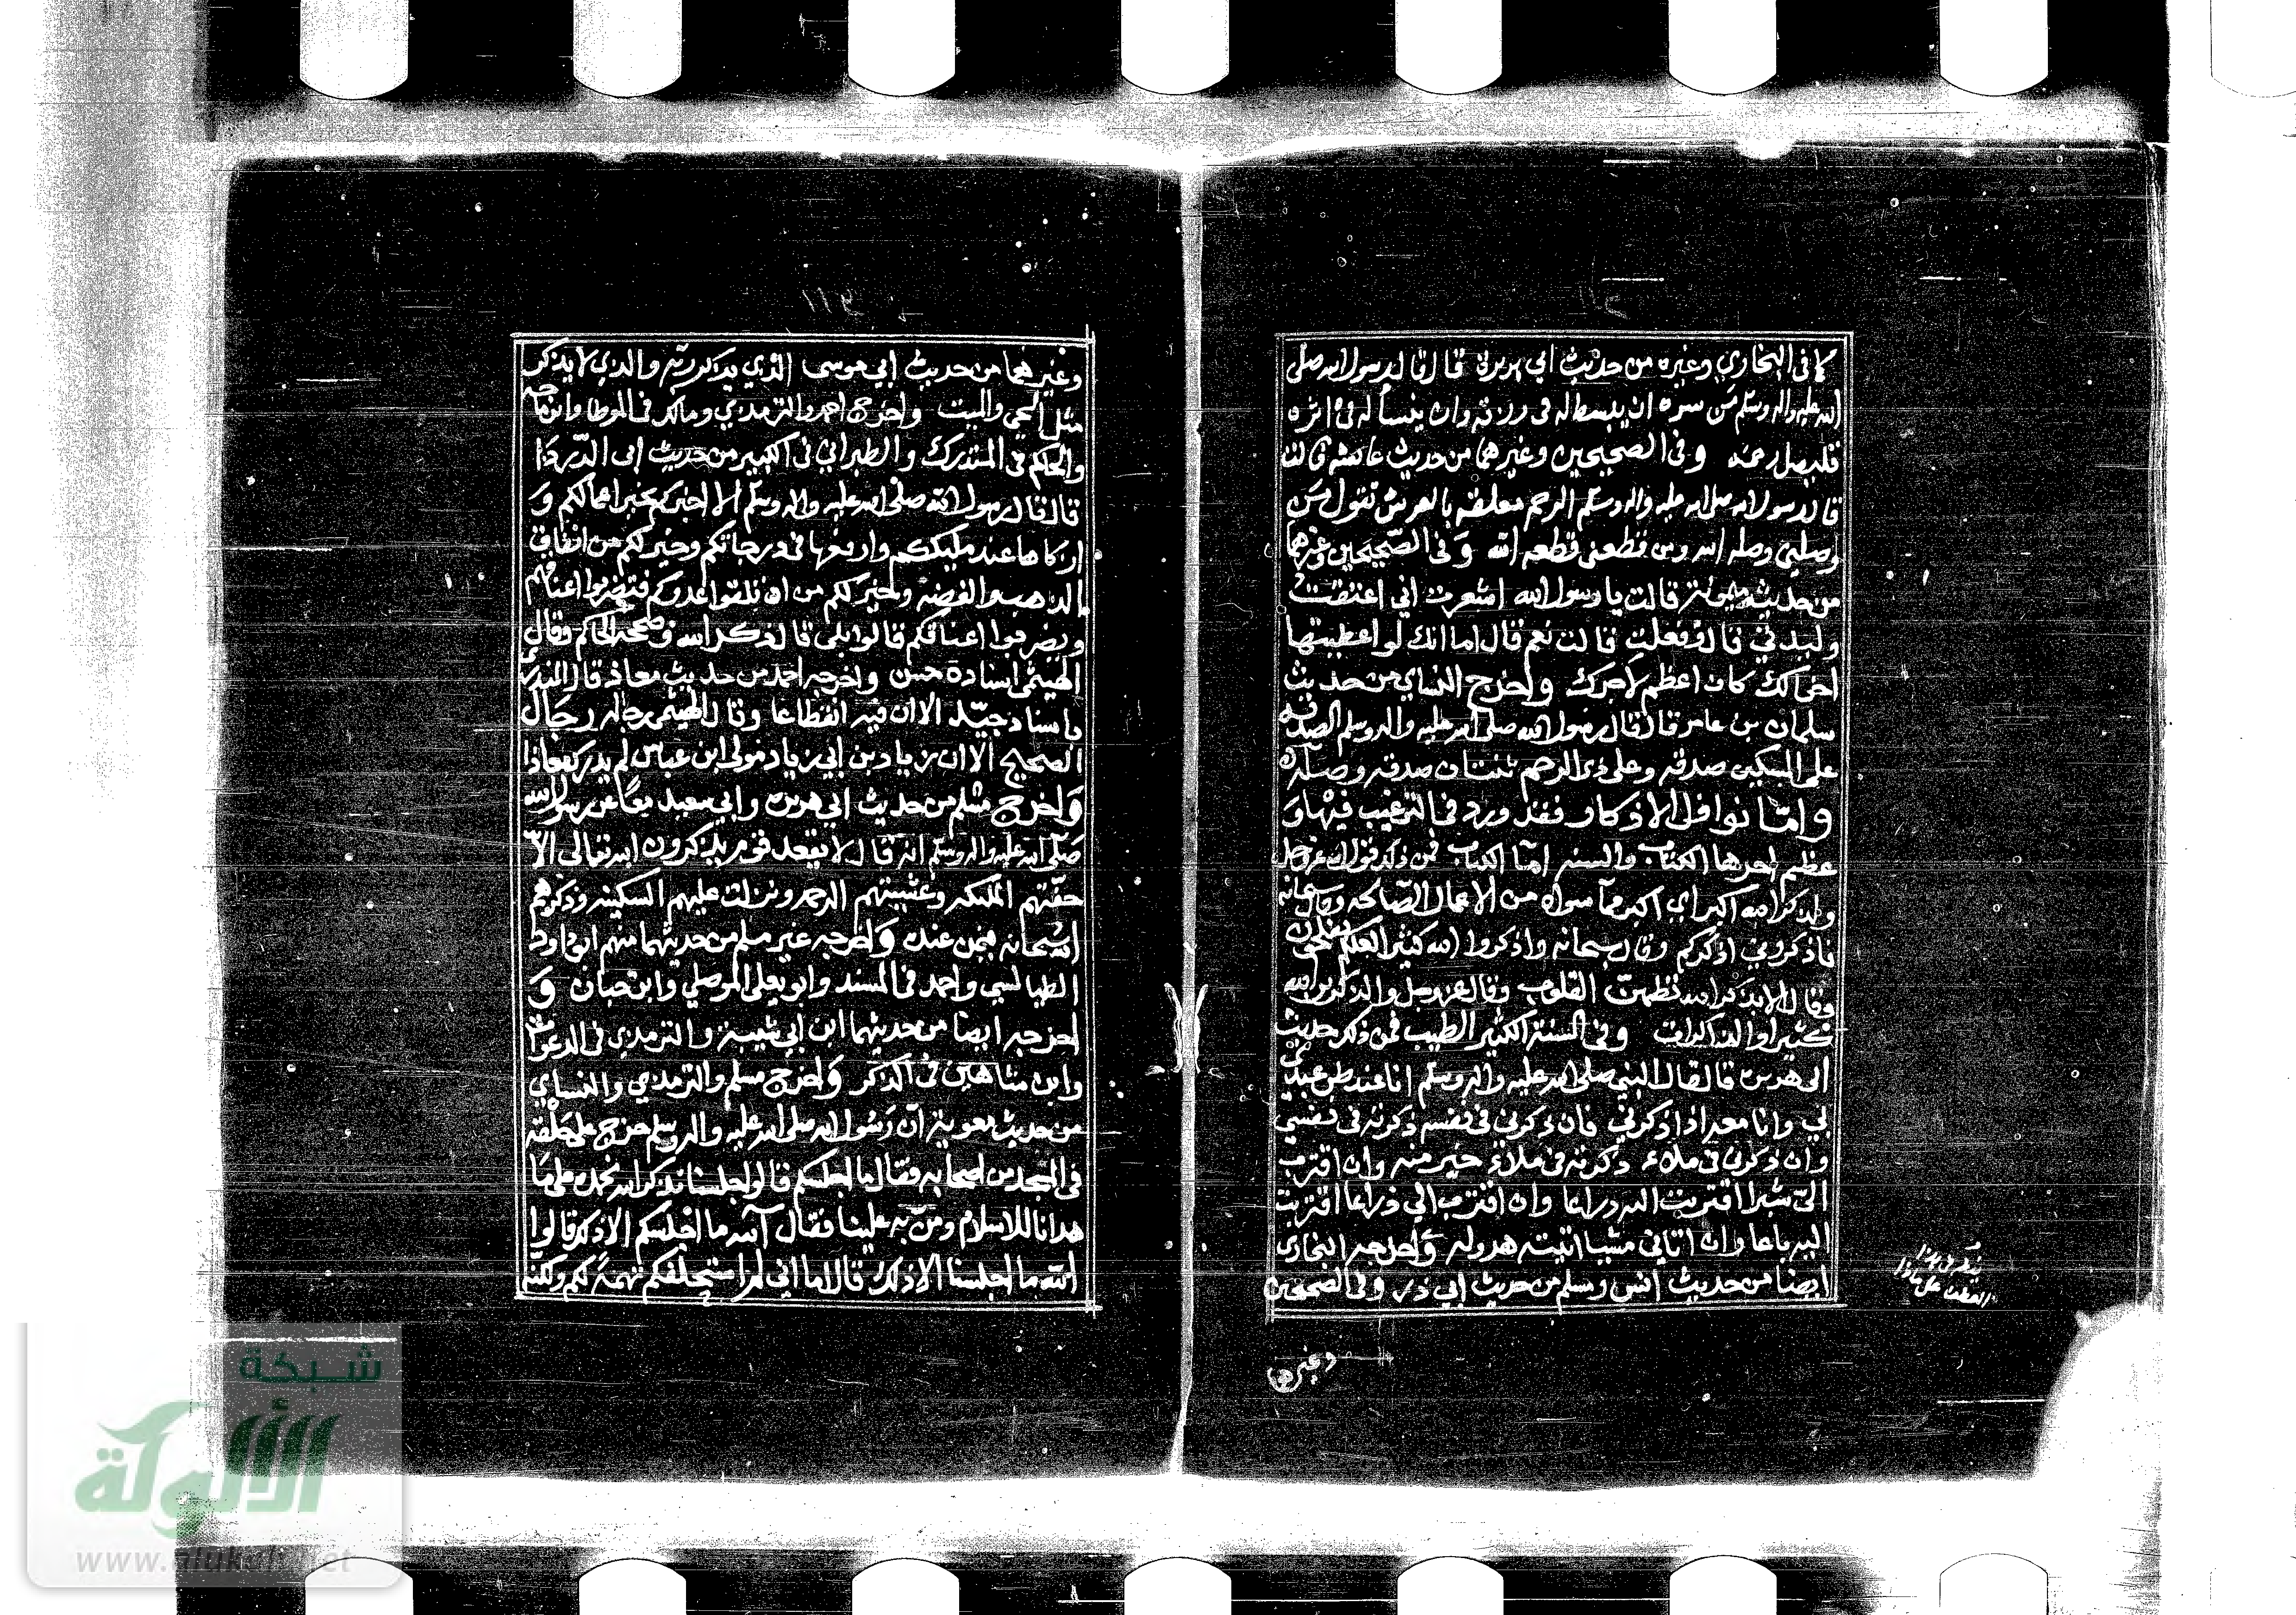 كما في البخاري وغيره من حديث ابي هريرة قال قال رسول الله صلى
الله عليه واله وسلم من سره ان يبسط له في رزقه وان ينسأ له في اثره
فليصل رحمه وفي الصحيحين وغيرهما من حديث عائشة قالت
قال رسول الله صلى الله عليه واله وسلم الرحم معلقة بالعرش تقول من
وصلني وصله الله ومن قطعني قطعه الله وفي الصحيحين وغيرهما
من حديث ميمونة قالت يا رسول الله اشعرت اني اعتقت
وليدتي قال او فعلت قالت نعم قال اما انك لو اعطيتها
اخوالك كان اعظم لاجرك واخرج النسائي من حديث
سلمان بن عامر قال قال رسول الله صلى الله عليه واله وسلم الصدقة
على المسكين صدقة وعلى ذي الرحم ثنتان صدقة وصلة
واما نوافل الاذكار فقد ورد في الترغيب فيها و
عظم اجرها الكتاب والسنة اما الكتاب فمن ذلك قوله عز وجل
ولذكر الله اكبر اي اكبر مما سواه من الاعمال الصالحة وقال سبحانه
فاذكروني اذكركم وقال سبحانه واذكروا الله كثيرا لعلكم تفلحون
وقال الا بذكر الله تطمئن القلوب وقال عز وجل والذاكرين الله
كثيرا والذاكرات وفي السنة الكثير الطيب فمن ذلك حديث
ابي هريرة قال قال النبي صلى الله عليه واله وسلم انا عند ظن عبدي
بي وانا معه اذا ذكرني فان ذكرني في نفسه ذكرته في نفسي
وان ذكرني في ملاء ذكرته في ملاء خير منه وان اقترب
الي شبرا اقتربت اليه ذراعا وان اقترب الي ذراعا اقتربت
اليه باعا وان اتاني مشيا اتيته هرولة واخرجه البخاري
ايضا من حديث انس ومسلم من حديث ابي ذر وفي الصحيحين
وغيرهما
ينظر في هذا
العطف على ماذا
وغيرهما من حديث ابي موسى الذي يذكر ربه والذي لا يذكر
مثل الحي والميت واخرج احمد والترمذي ومالك في الموطا وابن ماجه
والحاكم في المستدرك والطبراني في الكبير من حديث ابي الدرداء
قال قال رسول الله صلى الله عليه واله وسلم الا اخبركم بخير اعمالكم و
ازكاها عند مليككم وارفعها في درجاتكم وخير لكم من انفاق
الذهب والفضة وخير لكم من ان تلقوا عدوكم فتضربوا اعناقهم
ويضربوا اعناقكم قالوا بلى قال ذكر الله وصححه الحاكم وقال
الهيثمي اسناده حسن واخرجه احمد من حديث معاذ قال المنذري
باسناد جيد الا ان فيه انقطاعا وقال الهيثمي رجاله رجال
الصحيح الا ان زياد بن ابي زياد مولى ابن عباس لم يدرك معاذا
واخرج مسلم من حديث ابي هريرة وابي سعيد معا عن رسول الله
صلى الله عليه واله وسلم انه قال لا يقعد قوم يذكرون الله تعالى الا
حفتهم الملئكة وغشيتهم الرحمة ونزلت عليهم السكينة وذكرهم
الله سبحانه فيمن عنده واخرجه غير مسلم من حديثهما منهم ابو داود
الطيالسي واحمد في المسند وابو يعلى الموصلي وابن حبان و
اخرجه ايضا من حديثهما ابن ابي شيبة والترمذي في الدعوات
وابن شاهين في الذكر واخرج مسلم والترمذي والنسائي
من حديث معوية ان رسول الله صلى الله عليه واله وسلم خرج على حلقة
في المسجد من اصحابه فقال ما اجلسكم قالوا جلسنا نذكر الله نحمده على ما
هدانا للاسلام ومن به علينا فقال آلله ما اجلسكم الا ذلك قالوا
الله ما اجلسنا الا ذلك قال اما اني لم استحلفكم تهمة لكم ولكنه
شبكة
الألوكة
www.alukah.net